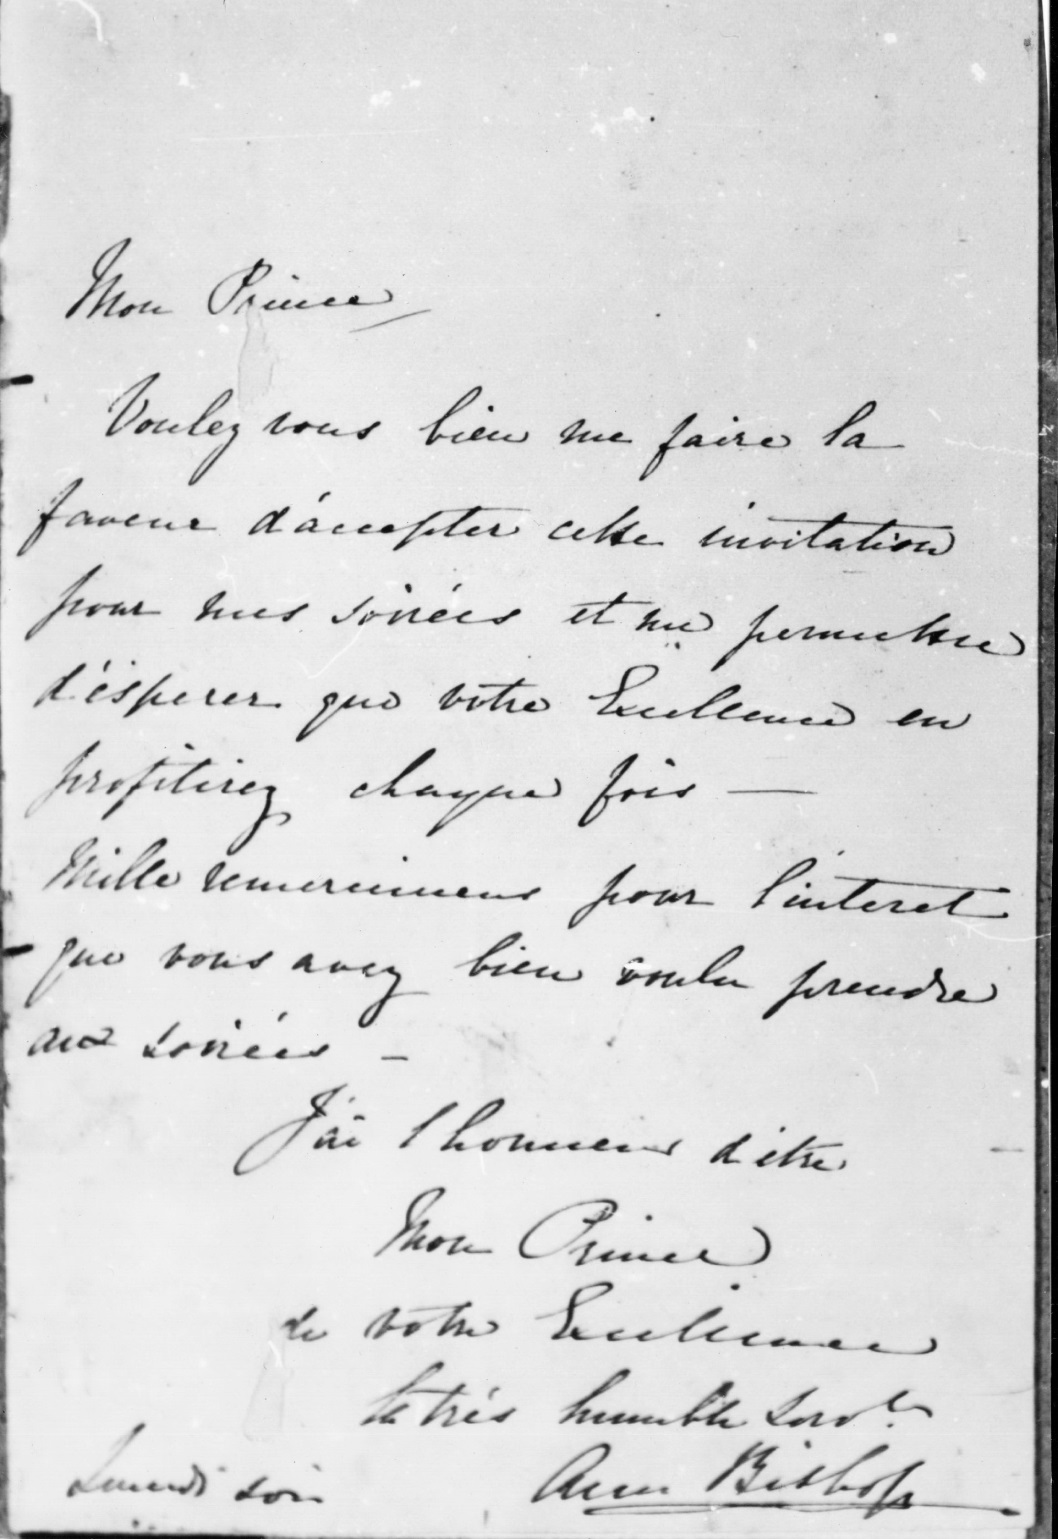 Mon Prince
Voulez vous bien me faire la
faveur d'accepter cette invitation
pour mes soirées et me permettre
d'ésperer que votre Excellence en
profitirez chaque fois —
Mille remercimens pour l'interet
que vous avez bien voulu prendre
aux soirées —
J'ai l'honneur d'etre
Mon Prince
de votre Excellence
la très humble Serv.te
Ann Bishop
Lunedi soir